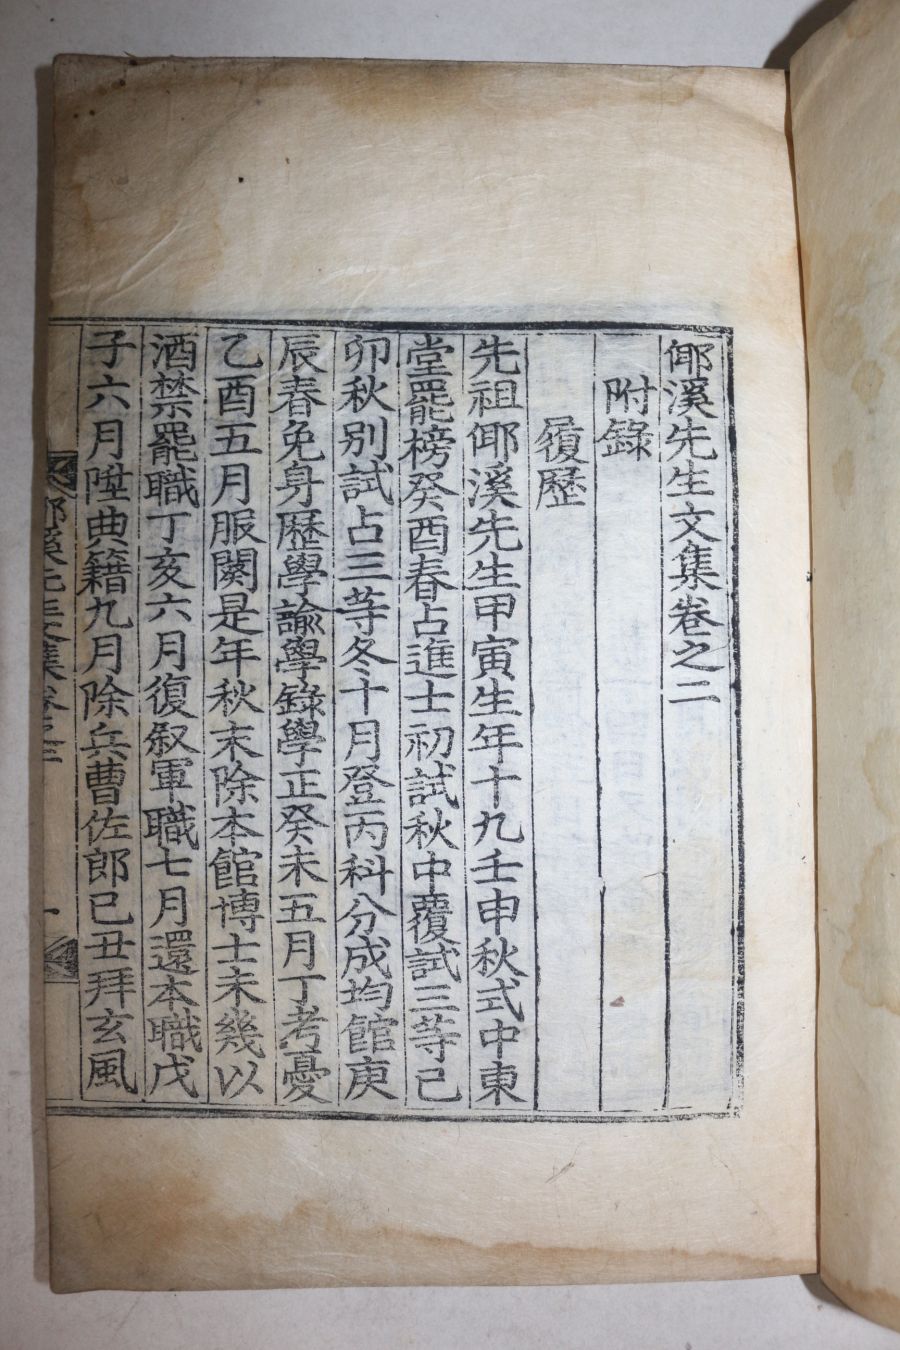 倻溪先生文集卷之二
附錄
履歷
先祖倻溪先生甲寅生年十九壬申秋式中東
堂罷榜癸酉春占進士初試秋中覆試三等己
卯秋別試占三等冬十月登丙科分成均館庚
辰春免身歷學諭學錄學正癸未五月丁考憂
乙酉五月服闋是年秋末除本館博士未幾以
酒禁罷職丁亥六月復敍軍職七月還本職戊
子六月陞典籍九月除兵曹佐郎己丑拜玄風